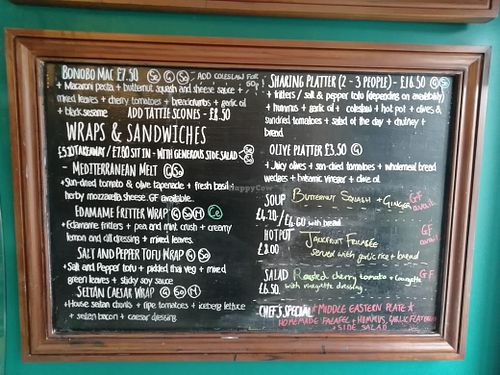 BONOBO MAC £7.50 Se G So ADD COLESLAW FOR 60p
• Macaroni pasta + butternut squash and cheese sauce +
mixed leaves + cherry tomatoes + breadcrumbs + garlic oil
+ black sesame ADD TATTIE SCONES - £8.50
WRAPS & SANDWICHES
£5.20 TAKEAWAY / £7.80 SIT IN - WITH GENEROUS SIDE SALAD
- MEDITERRANEAN MELT G So
• Sun-dried tomato & olive tapenade + fresh basil
herby mozzarella sheese. GF available.
EDAMAME FRITTER WRAP G So M Ce
• Edamame fritters + pea and mint crush + creamy
lemon and dill dressing + mixed leaves.
SALT AND PEPPER TOFU WRAP G So
• Salt and Pepper tofu + pickled thai veg + mixed
green leaves + sticky soy sauce
SEITAN CAESAR WRAP G So M
• House seitan chunks + ripe tomatoes + iceberg lettuce
+ seitan bacon + caesar dressing.
SHARING PLATTER (2 - 3 PEOPLE) - £16.50 G S
• fritters / salt & pepper tofu (depending on availability)
+ hummus + garlic oil + coleslaw + hot pot + olives &
sundried tomatoes + salad of the day + chutney +
bread
OLIVE PLATTER £3.50 G
• Juicy olives + sun-dried tomatoes + wholemeal bread
wedges + balsamic vinegar + olive oil
SOUP BUTTERNUT SQUASH + GINGER GF avail.
£4.20 / £4.60 with bread
HOTPOT JACKFRUIT FRICASEE GF avail
£8.00 served with garlic rice + bread
SALAD Roasted cherry tomato + Courgette GF
£6.50 with vinaigrette dressing
CHEF'S SPECIAL * MIDDLE EASTERN PLATE *
HOMEMADE FALAFEL + HUMMUS, GARLIC FLATBREAD
+ SIDE SALAD
HappyCow